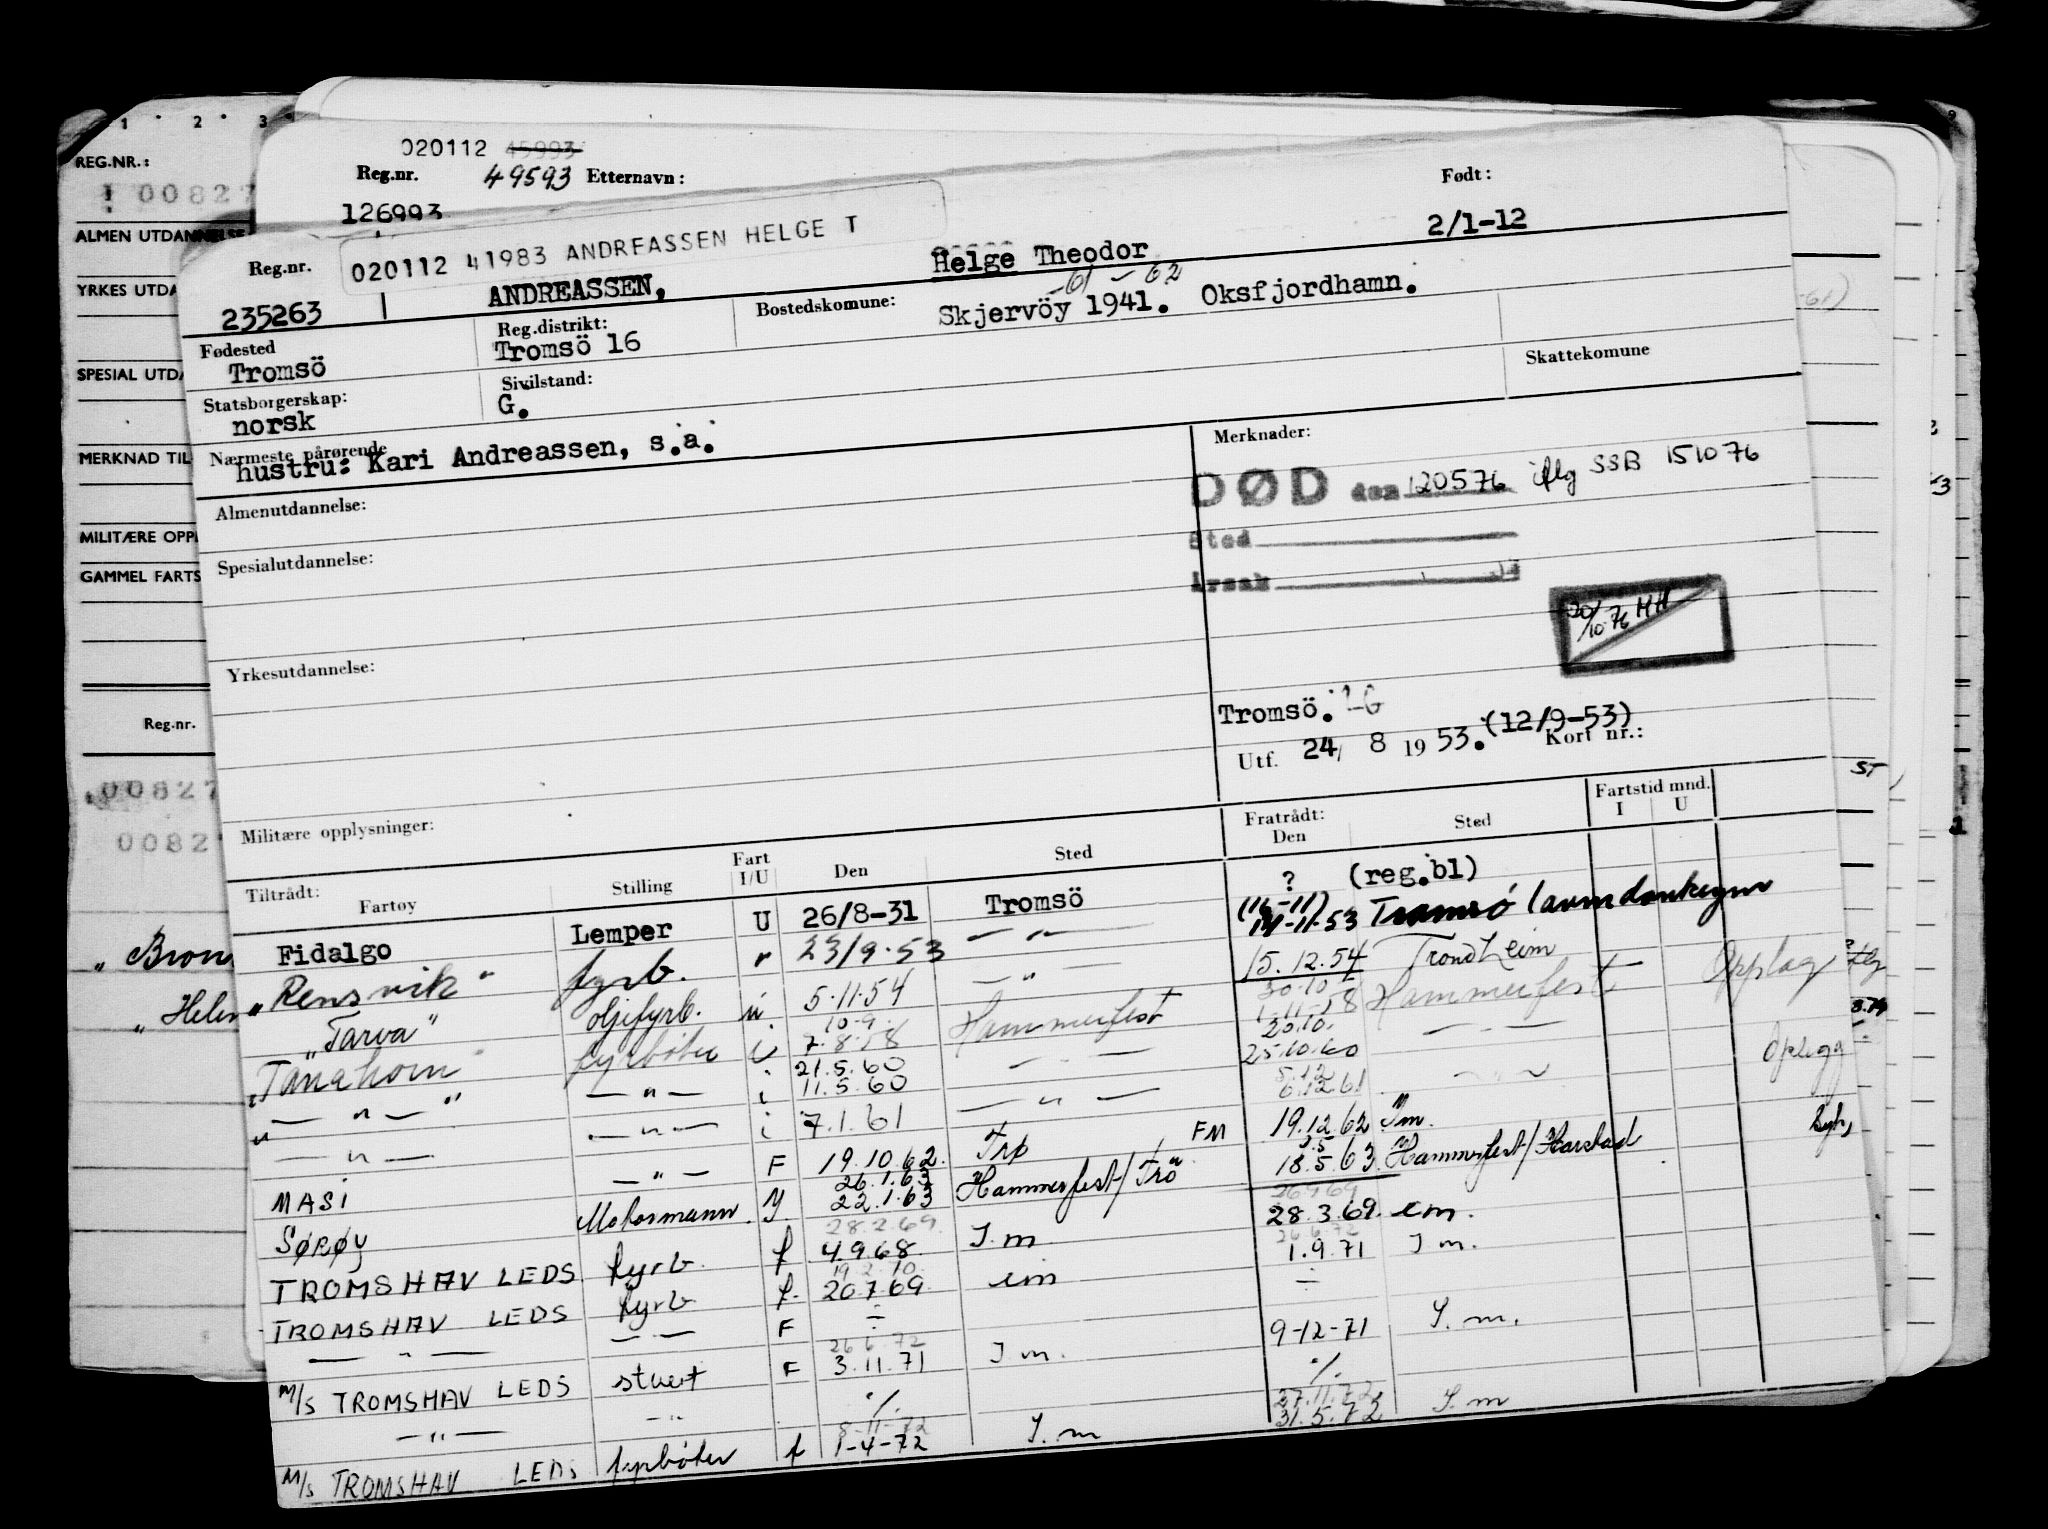 1 2 3
REG.NR.:
00827
ALMEN UTDANNELSE
YRKES UTDA
SPESIAL UTDA
MERKNAD TIL
MILITÆRE OPPL
GAMMEL FARTS
Reg.nr.
00827
0082
" Bron
" Helen
020112 45993
Reg.nr. 49593 Etternavn: Født:
126993
020112 41983 ANDREASSEN HELGE T
Reg.nr. ANDREASSEN, Helge Theodor 2/1-12
235263
-61 - 62
Fødested Reg.distrikt: Bostedskomune: Skjervöy 1941. Oksfjordhamn.
Tromsö Tromsö 16
Statsborgerskap: Sivilstand: Skattekomune
norsk G.
Nærmeste pårørende
hustru: Kari Andreassen, s.a.
Almenutdannelse: Merknader:
DØD den 120576 iflg SSB 151076
Sted
Årsak
Spesialutdannelse:
20/10-76 HH
Yrkesutdannelse:
Tromsö.
Utf. 24/ 8 1953. (12/9-53) Kort nr.:
Militære opplysninger:
Tiltrådt: Fartøy Stilling Fart I/U Den Sted Fratrådt: Den Sted Fartstid mnd. I U
Fidalgo Lemper U 26/8-31 Tromsö ? (reg.bl)
"Rensvik" fyrb. " 23/9-53 — " — (16-11) 14-11-53 Tromsö
"Tarva" oljefyrb. u 5.11.54 — " — 15.12.54 Trondheim
10.9 30.10
"Tanahorn" fyrbøter i 7.8.58 Hammerfest 1.11.58 Hammerfest Opplag
21.5.60 20.10.
" — " — " — " — i 11.5.60 — " — 25.10.60 — " — Oplegg
5.12
— " — — " — i 7.1.61 — " — 6.12.61 — " —
MASI — " — F 19.10.62 Trp FM 19.12.62 Sm.
26.1.63
SØRØY Motormann 22.1.63 Hammerfest/Trö 18.5.63 Hammerfest/Harstad
28.2.69 26969
TROMSHAV LEDS fyrb. f 4.9.68 I.m 28.3.69. em.
19.2.70 26.6.72
TROMSHAV LEDS fyrb f. 20.7.69 em 1.9.71 I m.
— " — — " — F ÷ ÷
26.6.72
M/S TROMSHAV LEDS stuert F 3.11.71 I.m. 9-12-71 I.m.
— " — — " — ·/. ·/.
8-11-72 27.11.72
M/S TROMSHAV LEDS fyrbøter f 1-4-72 I.m 31.5.72 I.m